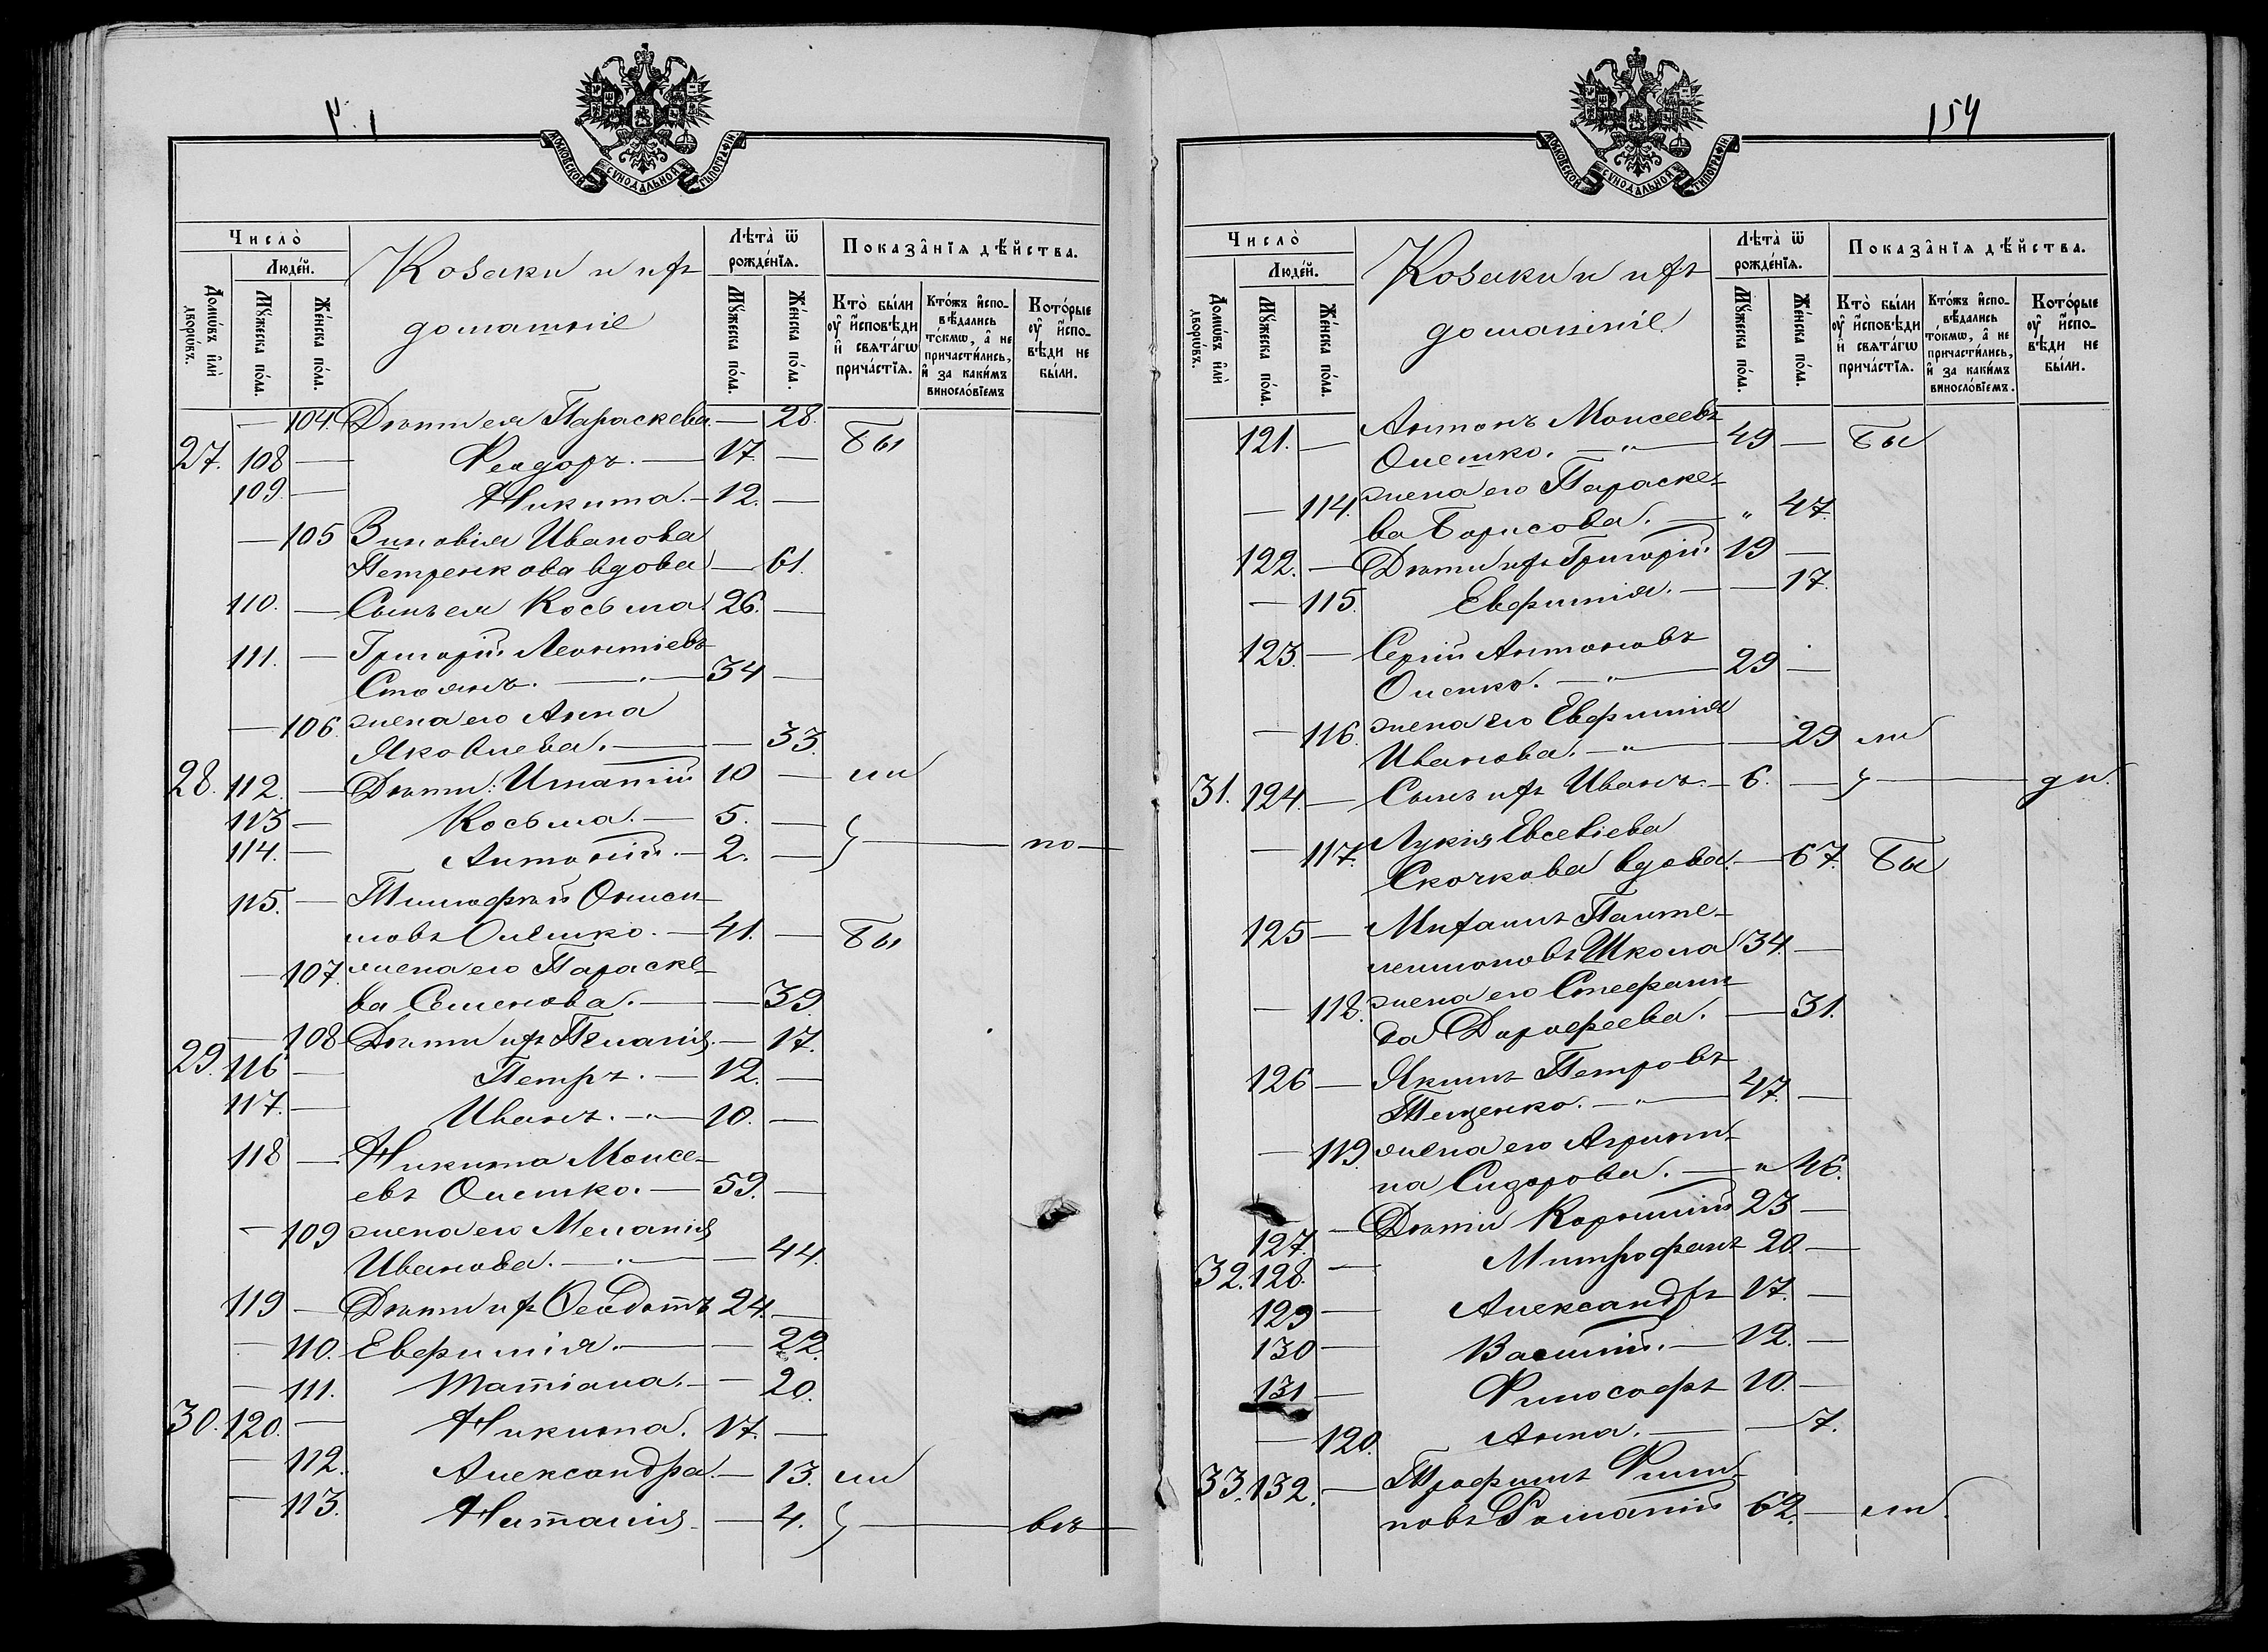 МОСКОВСКОЙ СѴНОДАЛЬНОЙ ТИПОГРАФІИ
Число̀
Люде́й.
Домѡ́въ и҆лѝ дворѡ́въ.
Мꙋ́жеска по́ла.
Же́нска по́ла.
Козаки и ихъ
домашніе
Лѣта̀ ѿ рожде́нїѧ.
Мꙋ́жеска по́ла.
Же́нска по́ла.
Показа̑нїѧ дѣ́йства.
Кто̀ бы́ли ᲂу҆ и҆́сповѣди и҆ свѧта́гѡ прича́стїѧ.
Кто́жъ и҆спо-вѣ́дались то́кмѡ, а҆ не причасти́лись, и҆ за каки́мъ винословїемъ.
Кото́рые ᲂу҆ и҆́спо-вѣди не бы́ли.
— 104. Дѣти ея Параскева. — 28.
27. 108 — Ѳеодоръ. — 17. — Бы
109. — Никита. — 12. —
— 105 Зиновія Иванова
Петренкова вдова — 61.
110. — Сынъ ея Косьма. 26. —
111. — Григорій Леонтіевъ
Стоянъ. — 34 —
— 106. жена его Анна
Яковлева. — — 33.
28. 112. — Дѣти: Игнатій 10 — ли
113 — Косьма. — 5. —
114. — Антоній. — 2. — — по —
115. — Тимофѣй Ониси-
мовъ Олешко. — 41. — Бы
— 107. жена его Параске-
ва Семенова. — — 39.
— 108 Дѣти ихъ Пелагія. — 17.
29. 116 — Петръ. — 12. —
117. — Иванъ. — 10. —
118 — Никита Моисе-
евъ Олешко. — 59. —
— 109 жена его Меланія
Иванова. — — 44.
119 — Дѣти ихъ Ѳеодотъ 24. —
— 110. Евфимія. — — 22.
— 111. Татіана. — — 20.
30. 120. — Никита. 17. —
— 112. Александра. — 13. ли
— 113. Наталія — 4. — въ —
154
МОСКОВСКОЙ СѴНОДАЛЬНОЙ ТИПОГРАФІИ
Число̀
Люде́й.
Домѡ́въ и҆лѝ дворѡ́въ.
Мꙋ́жеска по́ла.
Же́нска по́ла.
Козаки и ихъ
домашніе.
Лѣта̀ ѿ рожде́нїѧ.
Мꙋ́жеска по́ла.
Же́нска по́ла.
Показа̑нїѧ дѣ́йства.
Кто̀ бы́ли ᲂу҆ и҆́сповѣди и҆ свѧта́гѡ прича́стїѧ.
Кто́жъ и҆спо-вѣ́дались то́кмѡ, а҆ не причасти́лись, и҆ за каки́мъ винословїемъ.
Кото́рые ᲂу҆ и҆́спо-вѣди не бы́ли.
121. — Антонъ Моисеевъ
Олешко. — 49 — Бы
— 114. жена его Параске-
ва Борисова. — " 47.
122. — Дѣти ихъ Григорій 19 —
— 115. Евфимія. — — 17.
123. — Сергій Антоновъ
Олешко. — 29 —
— 116. жена его Евфимія
Иванова. — — 29 ли
31. 124. — Сынъ ихъ Иванъ. — 6. — — ди.
— 117. Лукія Евсевіева
Скочкова вдова. — 67. Бы
125 — Михаилъ Панте-
леимоновъ Школа 34. —
— 118. жена его Стефани-
да Дорофеева. — 31.
126 — Якимъ Петровъ
Тещенко. — 47. —
— 119. жена его Агрипи-
на Сидорова. — " 46.
127. — Дѣти Корнилій 23 —
32. 128. — Митрофанъ 20. —
129 — Александръ 17. —
130 — Василій. — 12. —
131 — Философъ 10. —
— 120. Анна. — — 7.
33. 132. — Трофимъ Филип-
повъ Романій 62. — ли.